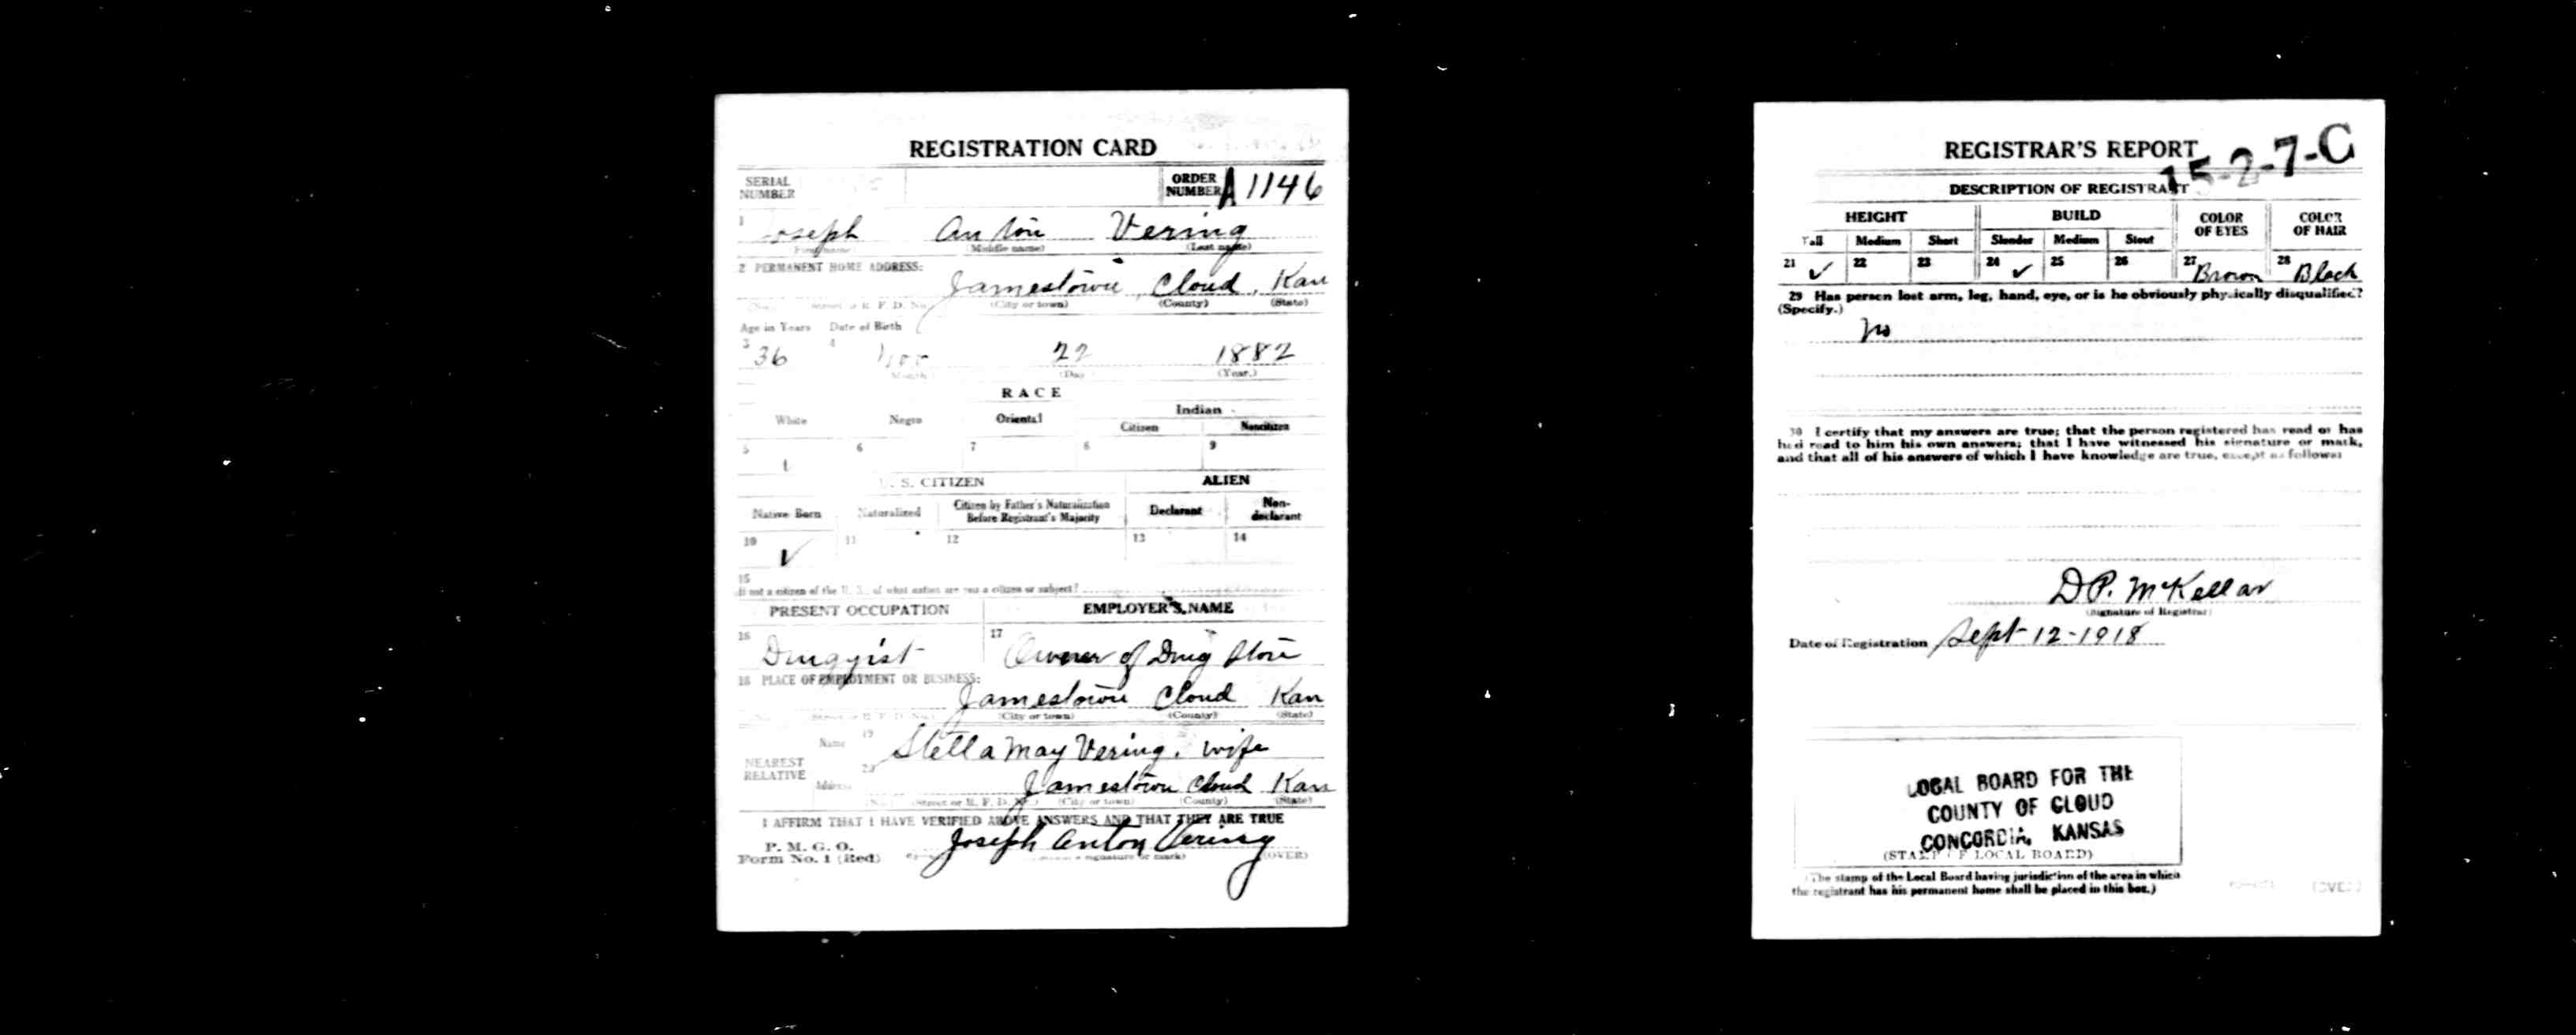 REGISTRATION CARD
SERIAL NUMBER
ORDER NUMBER A 1146
1 Joseph Anton Vering
(First name) (Middle name) (Last name)
2 PERMANENT HOME ADDRESS:
Jamestown, Cloud, Kan
(No.) (Street or R. F. D. No.) (City or town) (County) (State)
Age in Years Date of Birth
3 36 4 22 1882
(Month) (Day) (Year.)
RACE
White Negro Oriental Indian
Citizen Noncitizen
5 6 7 8 9
U. S. CITIZEN ALIEN
Native Born Naturalized Citizen by Father's Naturalization Before Registrant's Majority Declarant Non-declarant
10 ✓ 11 12 13 14
15
If not a citizen of the U. S., of what nation are you a citizen or subject?
PRESENT OCCUPATION EMPLOYER'S NAME
16 Druggist 17 Owner of Drug Store
18 PLACE OF EMPLOYMENT OR BUSINESS:
Jamestown Cloud Kan
(No.) (Street or R. F. D. No.) (City or town) (County) (State)
NEAREST RELATIVE
Name 19 Stella May Vering, wife
Address 20 Jamestown Cloud Kan
(No.) (Street or R. F. D. No.) (City or town) (County) (State)
I AFFIRM THAT I HAVE VERIFIED ABOVE ANSWERS AND THAT THEY ARE TRUE
P. M. G. O.
Form No. 1 (Red) Joseph Anton Vering
(Registrant's signature or mark) (OVER)
REGISTRAR'S REPORT
15-2-7-C
DESCRIPTION OF REGISTRANT
HEIGHT BUILD COLOR OF EYES COLOR OF HAIR
Tall Medium Short Slender Medium Stout
21 ✓ 22 23 24 ✓ 25 26 27 Brown 28 Black
29 Has person lost arm, leg, hand, eye, or is he obviously physically disqualified?
(Specify.)
No
30 I certify that my answers are true; that the person registered has read or has
had read to him his own answers; that I have witnessed his signature or mark,
and that all of his answers of which I have knowledge are true, except as follows:
D.P. McKellar
(Signature of Registrar)
Date of Registration Sept-12-1918
LOCAL BOARD FOR THE
COUNTY OF CLOUD
CONCORDIA, KANSAS
(STAMP OF LOCAL BOARD)
(The stamp of the Local Board having jurisdiction of the area in which
the registrant has his permanent home shall be placed in this box.)
(OVER)